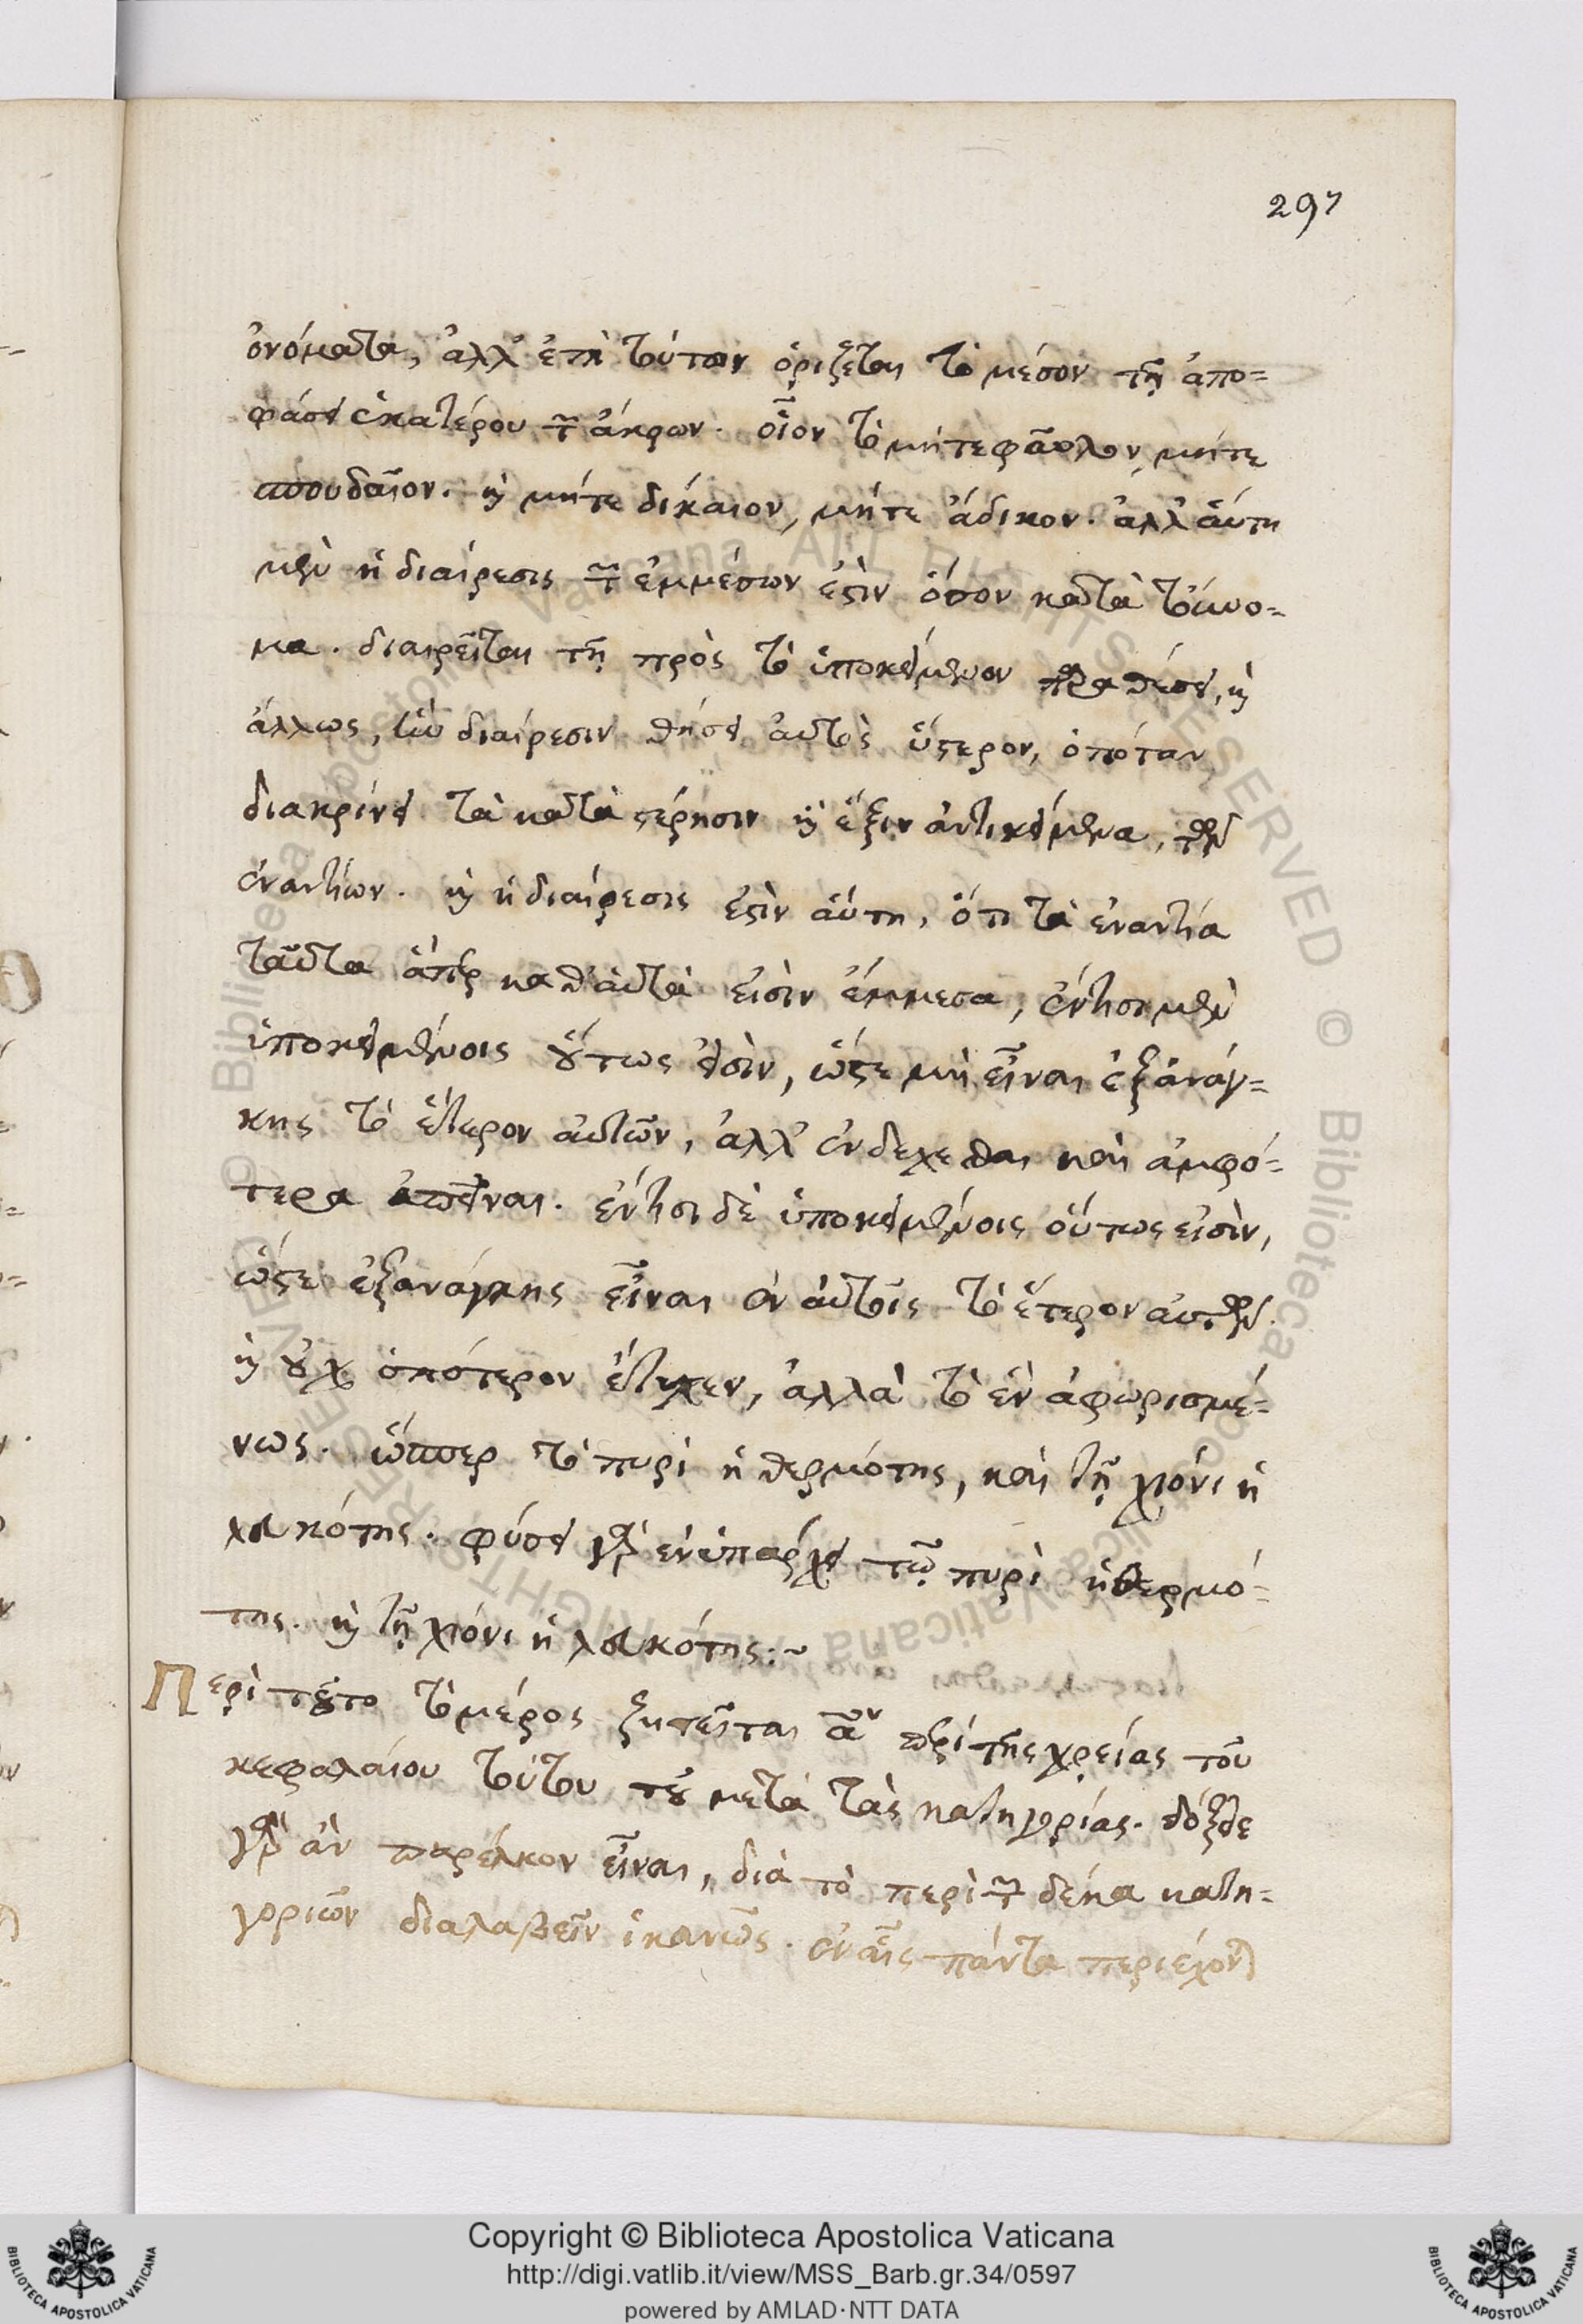 297
ὀνόματα, ἀλλ' ἐπὶ τούτων ὁρίζεται τὸ μέσον τῇ ἀπο-
φάσει ἑκατέρου τῶν ἄκρων. οἷον τὸ μήτε φαῦλον, μήτε
σπουδαῖον. καὶ μήτε δίκαιον, μήτε ἄδικον. ἀλλ' αὕτη
μὲν ἡ διαίρεσις τῶν ἐμμέσων ἐστὶν ὅσον κατὰ τοὔνο-
μα. διαιρεῖται τῇ πρὸς τὸ ὑποκείμενον παραθέσει, καὶ
ἄλλως, ἣν διαίρεσιν θήσει αὐτὸς ὕστερον, ὁπόταν
διακρίνει τὰ κατὰ στέρησιν καὶ ἕξιν ἀντικείμενα, τῶν
ἐναντίων. καὶ ἡ διαίρεσις ἐστὶν αὕτη, ὅτι τὰ ἐναντία
ταῦτα ἅπερ καθ' αὑτὰ εἰσὶν ἔμμεσα, ἐν τισὶ μὲν
ὑποκειμένοις οὕτως εἰσὶν, ὥστε μὴ εἶναι ἐξ ἀνάγ-
κης τὸ ἕτερον αὐτῶν, ἀλλ' ἐνδέχεσθαι καὶ ἀμφό-
τερα ἀπεῖναι. ἐν τισι δὲ ὑποκειμένοις οὕτως εἰσὶν,
ὥστε ἐξανάγκης εἶναι ἐν αὐτοῖς τὸ ἕτερον αὐτῶν.
καὶ οὐχ ὁπότερον ἔτυχεν, ἀλλὰ τὸ ἓν ἀφωρισμέ-
νως. ὥσπερ τὸ πυρὶ ἡ θερμότης, καὶ τῇ χιόνι ἡ
λευκότης. φύσει γὰρ ἐνυπάρχει τῷ πυρὶ ἡ θερμό-
της. καὶ τῇ χιόνι ἡ λευκότης:~
Περὶ τοῦτο τὸ μέρος ζητεῖται αον περὶ τῆς χρείας τοῦ
κεφαλαίου τούτου τοῦ μετὰ τὰς κατηγορίας. δόξειε
γὰρ ἂν παρέλκον εἶναι, διὰ τὸ περὶ τῶν δέκα κατη-
γοριῶν διαλαβεῖν ἱκανῶς. ἐν αἷς πάντα περιέχονται
Copyright © Biblioteca Apostolica Vaticana
http://digi.vatlib.it/view/MSS_Barb.gr.34/0597
powered by AMLAD·NTT DATA